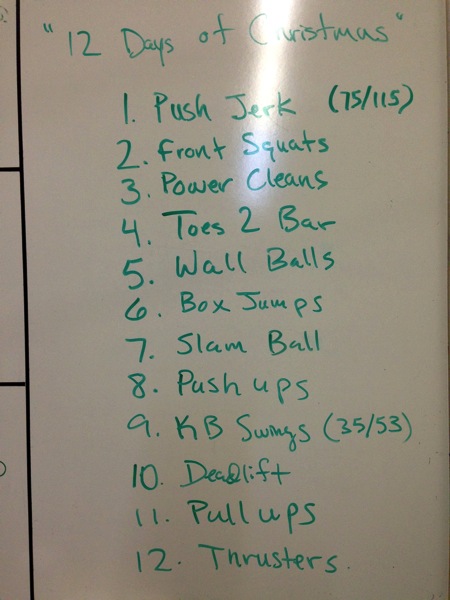 "12 Days of Christmas"
1. Push Jerk (75/115)
2. Front Squats
3. Power Cleans
4. Toes 2 Bar
5. Wall Balls
6. Box Jumps
7. Slam Ball
8. Push ups
9. KB Swings (35/53)
10. Deadlift
11. Pull ups
12. Thrusters.